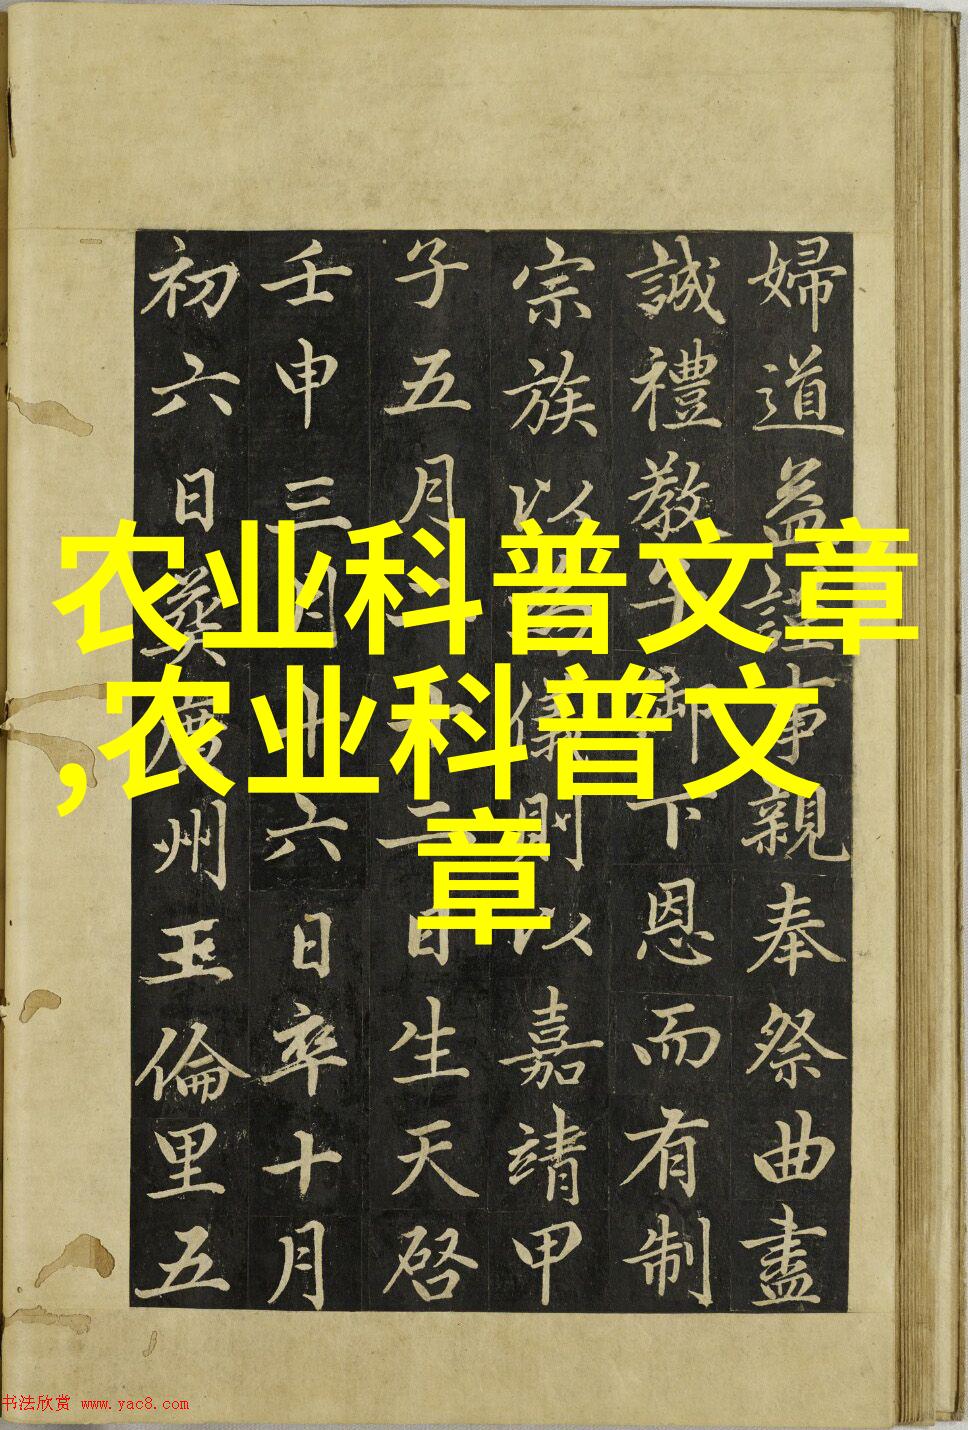 婦道益謹事親奉祭曲盡
誠禮教子御下恩而有制
宗族以為儀則以嘉靖甲
子五月二十二日生天啓
壬申三月廿六日卒十月
初六日葬州玉倫里五
农业科普文章
,农业科普文
章
书法欣赏 www.yac8.com